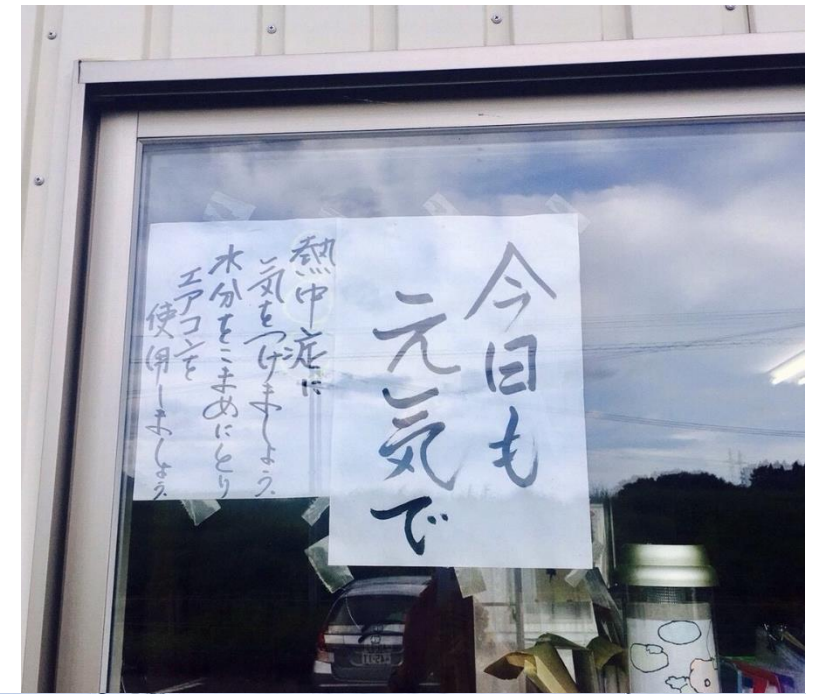 今日も
元気で
熱中症に
気をつけましょう。
水分をこまめにとり
エアコンを
使用しましょう。